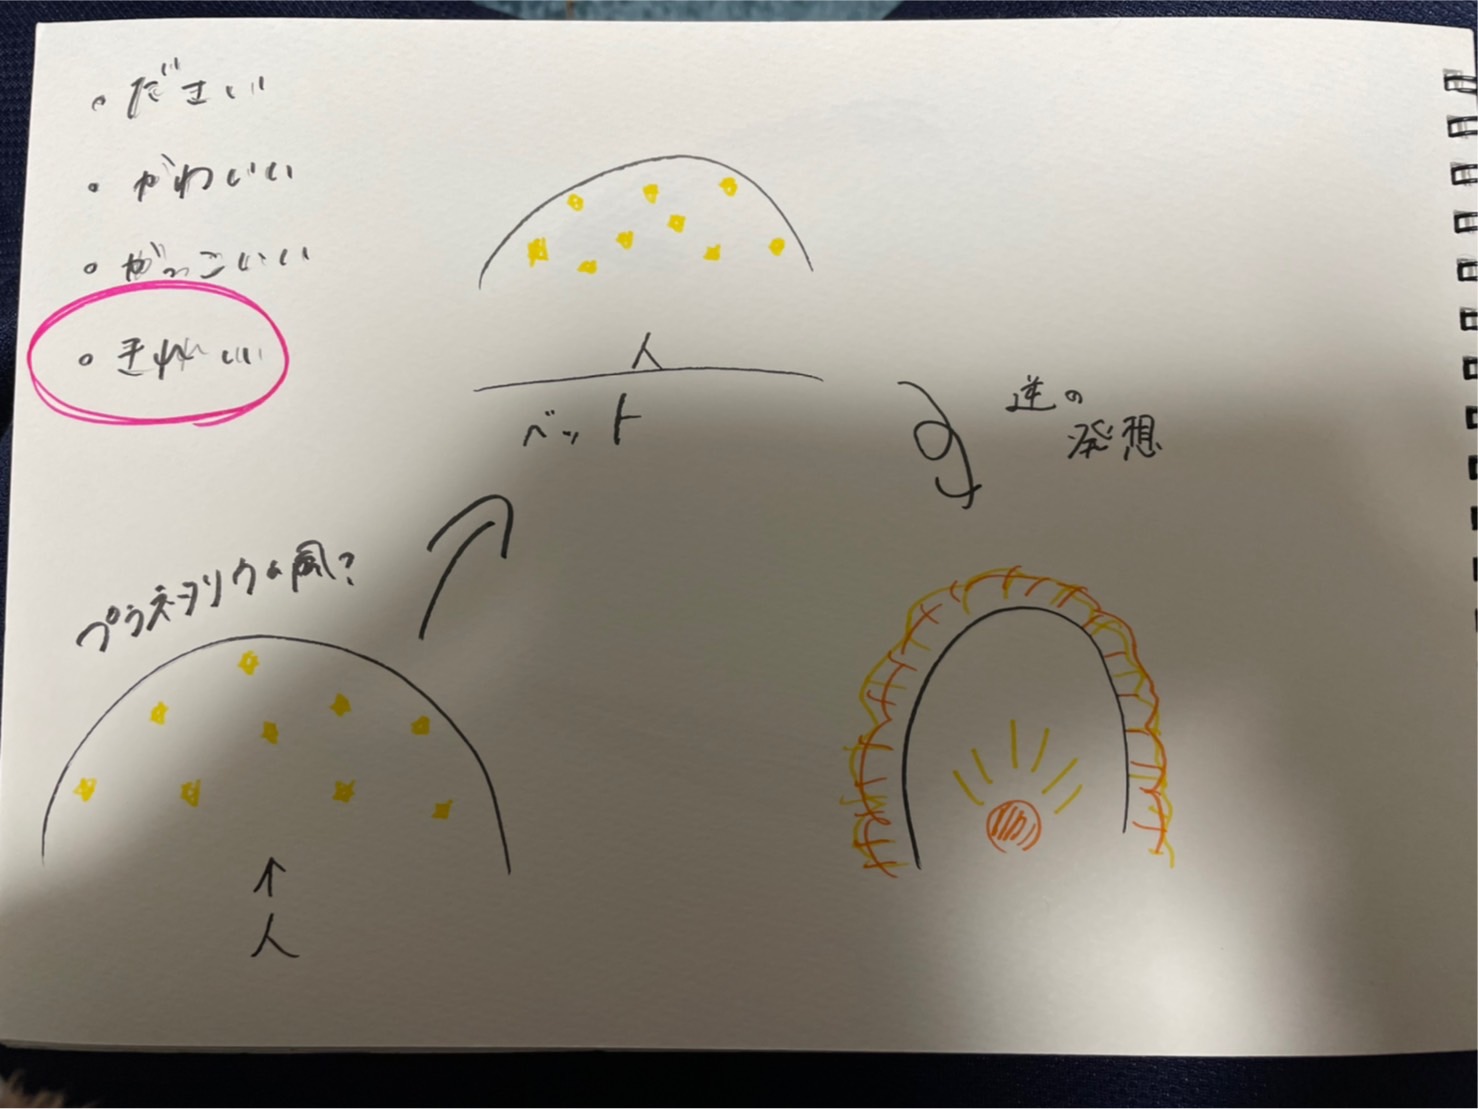 ・ださい
・かわいい
・かっこいい
・きれいい
人
ベット
逆の
発想
プラネタリウム風?
人